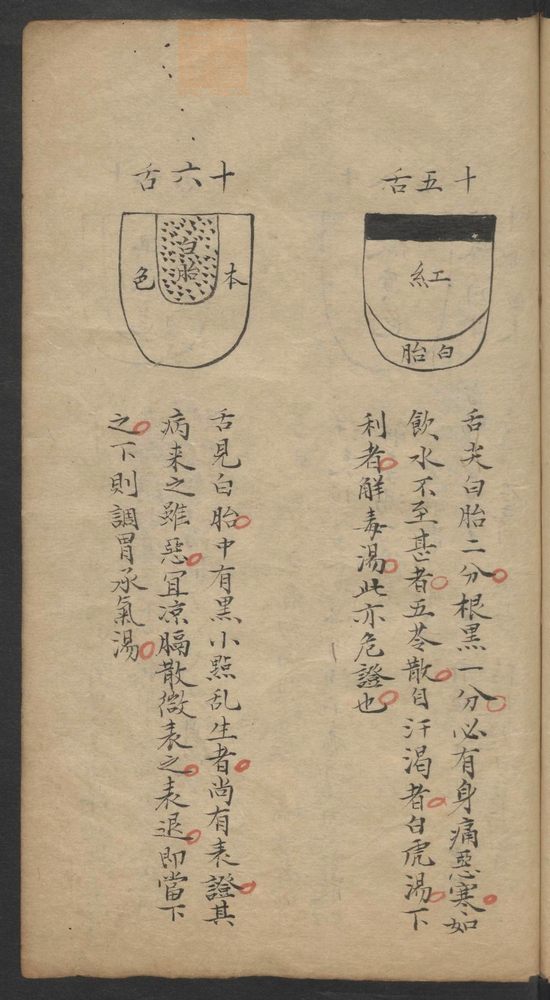 十五舌
紅
白胎
舌尖白胎二分根黑一分必有身痛惡寒如
飲水不至甚者五苓散自汗渴者白虎湯下
利者解毒湯此亦危證也
十六舌
白胎
本色
舌見白胎中有黑小點乱生者尚有表證其
病来之雖惡宜凉膈散微表之表退即當下
之下則調胃承氣湯